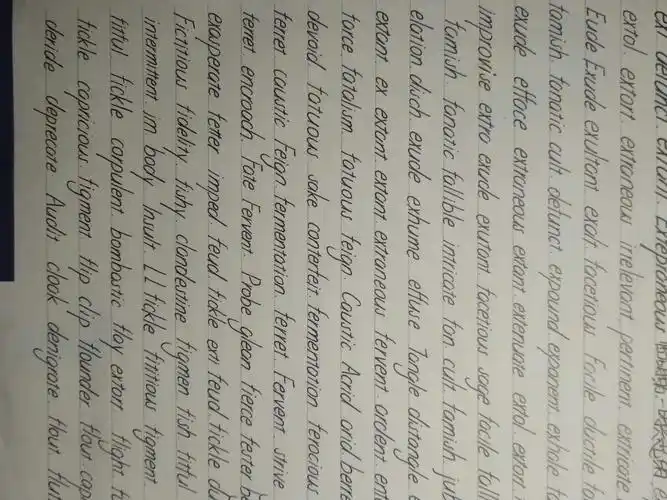 extol. extort. extraneous irrelevant pertinent. extricate
Eude Exude exultant exalt. facetious Facile ductile
famish. fanatic cult. defunct. expound exponent. exhale
exude efface extraneous extant. extenuate extol extort
improvise extro exude exutant facetious sage facile
famish. fanatic fallible intricate fan. cult. famish.
elation. dich exude exhume effuse Tangle distangle
extant. ex extant extant extraneous fervent. ardent
farce. fatalism. fatuous feign. Caustic Acrid arid
devoid fatuous sake conterfeit. fermentation ferocious
ferret caustic. Feign. fermentation. ferret Fervent. strive
ferret encroach. Fate Fervent. Probe glean fierce fester
exauperate fetter imped feud fickle ext feud fickle
Fictitious fidelity fishy clandestine figmen fish fitful
intermittent. im body haunt. LL fickle fititious figment
fitful fickle corpulent. bombastic flay extort flight
fickle capricious. figment flip clip flounder flout
deride deprecate Audit cloak denigrate flout